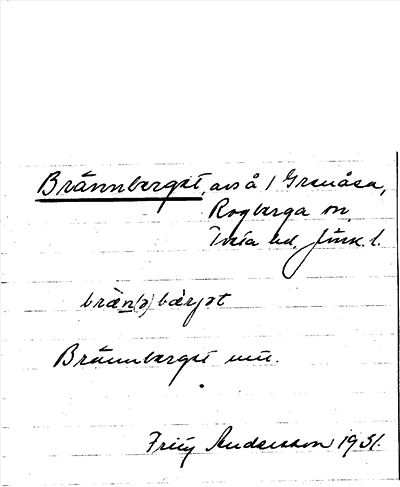 Brännberget, avs å / Grenåsa,
Rogberga sn,
Tveta hd. Jönk. l.
brän(ə)bärjət
Brännberget mu.
Friy Andersson 1931.